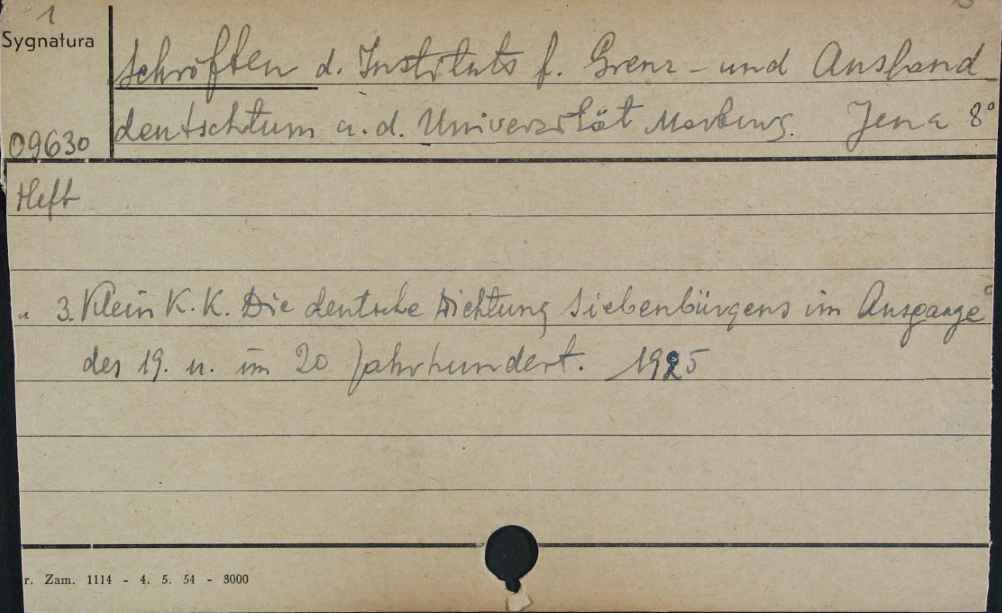 1
Sygnatura
Schriften d. Instituts f. Grenz- und Ausland
09630
deutschtum a. d. Universität Marburg. Jena 8°
Heft
" 3. Klein K. K. Die deutsche Dichtung Siebenbürgens im Ausgange
des 19. u. im 20 Jahrhundert. 1925
r. Zam. 1114 - 4. 5. 54 - 3000